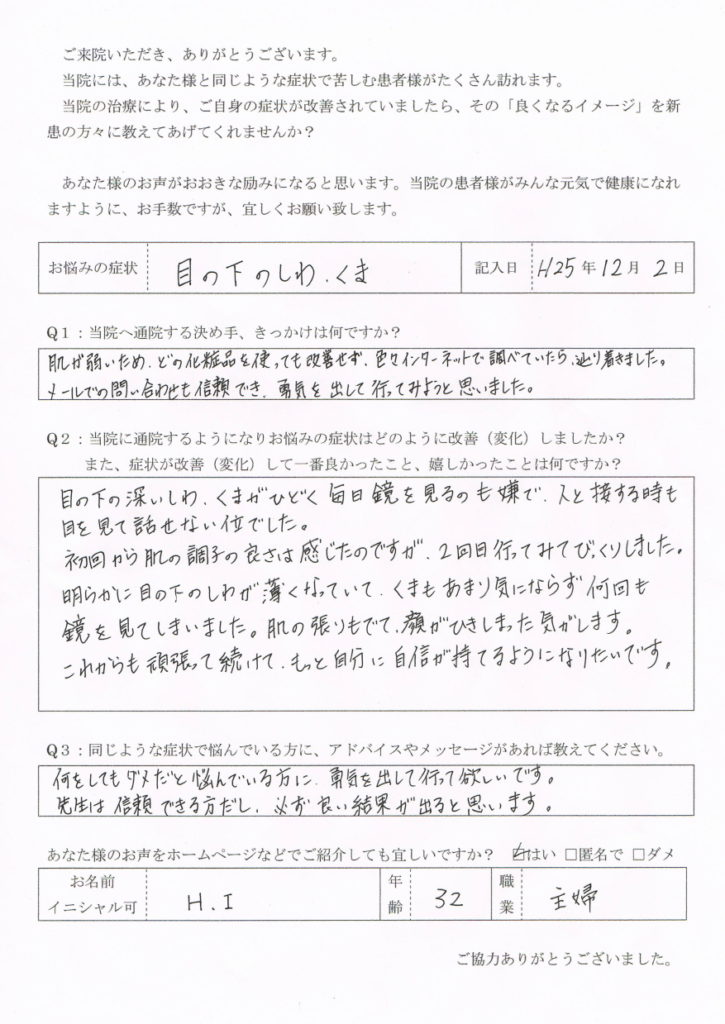 ご来院いただき、ありがとうございます。
当院には、あなた様と同じような症状で苦しむ患者様がたくさん訪れます。
当院の治療により、ご自身の症状が改善されていましたら、その「良くなるイメージ」を新
患の方々に教えてあげてくれませんか？
あなた様のお声がおおきな励みになると思います。当院の患者様がみんな元気で健康になれ
ますように、お手数ですが、宜しくお願い致します。
お悩みの症状 目の下のしわ、くま 記入日 H25年12月2日
Q1：当院へ通院する決め手、きっかけは何ですか？
肌が弱いため、どの化粧品を使っても改善せず、色々インターネットで調べていたら、辿り着きました。
メールでの問い合わせも信頼でき、勇気を出して行ってみようと思いました。
Q2：当院に通院するようになりお悩みの症状はどのように改善（変化）しましたか？
また、症状が改善（変化）して一番良かったこと、嬉しかったことは何ですか？
目の下の深いしわ、くまがひどく毎日鏡を見るのも嫌で、人と接する時も
目を見て話せない位でした。
初回から肌の調子の良さは感じたのですが、2回目行ってみてびっくりしました。
明らかに目の下のしわが薄くなっていて、くまもあまり気にならず何回も
鏡を見てしまいました。肌の張りもでて、顔がひきしまった気がします。
これからも頑張って続けて、もっと自分に自信が持てるようになりたいです。
Q3：同じような症状で悩んでいる方に、アドバイスやメッセージがあれば教えてください。
何をしてもダメだと悩んでいる方に、勇気を出して行って欲しいです。
先生は信頼できる方だし、必ず良い結果が出ると思います。
あなた様のお声をホームページなどでご紹介しても宜しいですか？ ☑はい □匿名で □ダメ
お名前 イニシャル可 H.I 年齢 32 職業 主婦
ご協力ありがとうございました。